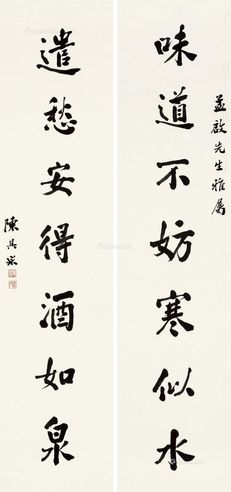 益啟先生雅屬
味道不妨寒似水
遣愁安得酒如泉
陳其采